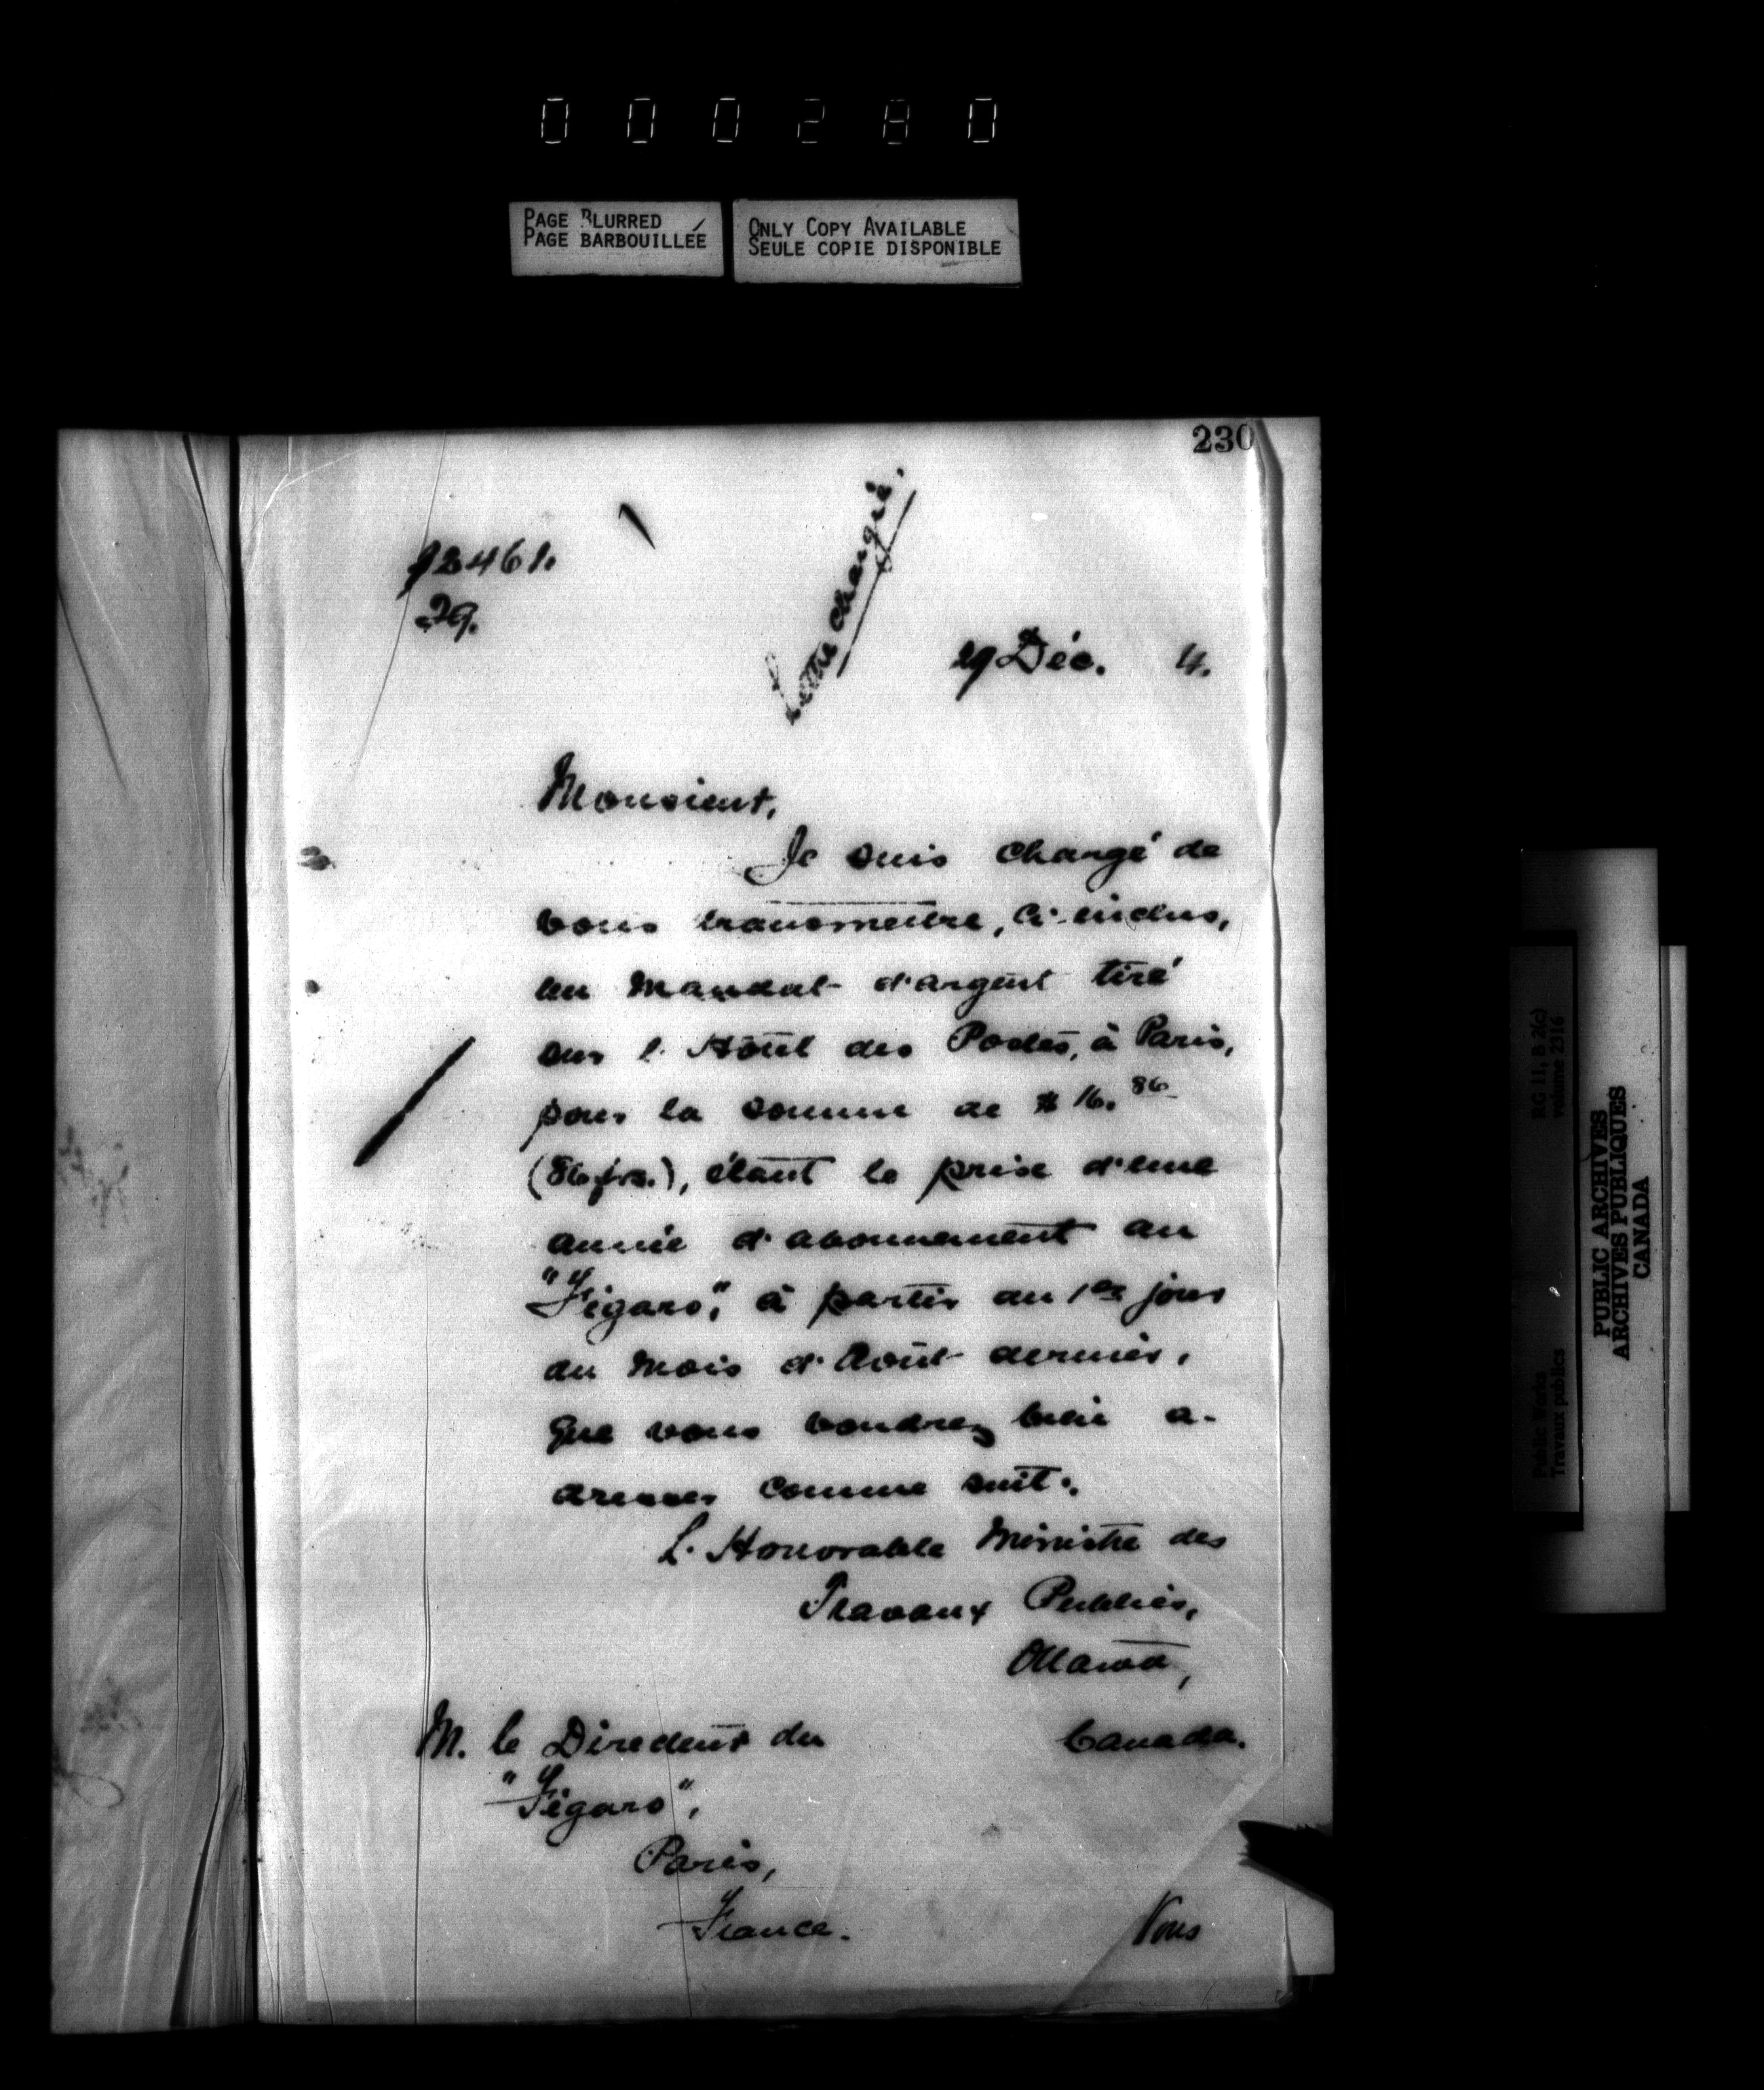 000280
PAGE BLURRED
PAGE BARBOUILLÉE
ONLY COPY AVAILABLE
SEULE COPIE DISPONIBLE
230
12461.
29.
Lettre chargée.
29 Déc. 4.
Monsieur,
Je suis chargé de
vous transmettre, ci-inclus,
un Mandat d'argent tiré
sur l'Hôtel des Postes, à Paris,
pour la somme de $16.86
(86 frs.), étant le prix d'une
année d'abonnement au
"Figaro", à partir du 1er jour
du mois d'Août dernier,
que vous voudrez bien a-
dresser comme suit:
L'Honorable Ministre des
Travaux Publics,
Ottawa,
Canada.
M. le Directeur du
"Figaro",
Paris,
France.
Vous
RG 11, B 2(c)
volume 2316
Public Works
Travaux publics
PUBLIC ARCHIVES
ARCHIVES PUBLIQUES
CANADA